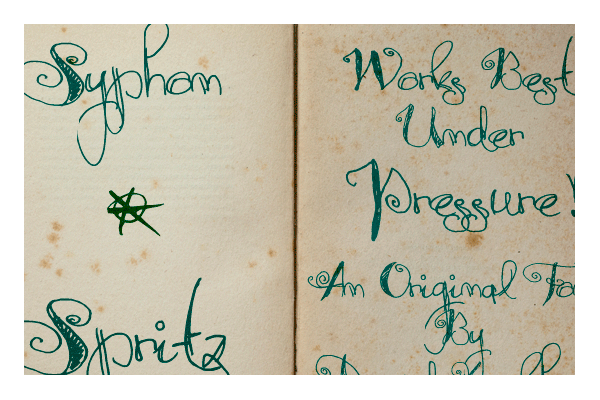 Syphon
Spritz
Works Best
Under
Pressure!
An Original
By